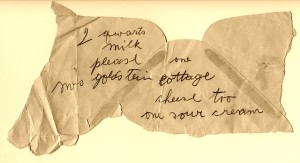 2 quarts
milk
please one
mrs goldstein cottage
cheese too
one sour cream